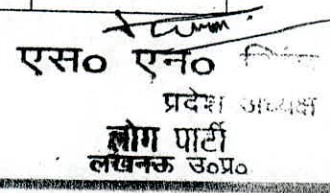 एस० एन०
प्रदेश अध्यक्ष
लोग पार्टी
लखनऊ उ०प्र०